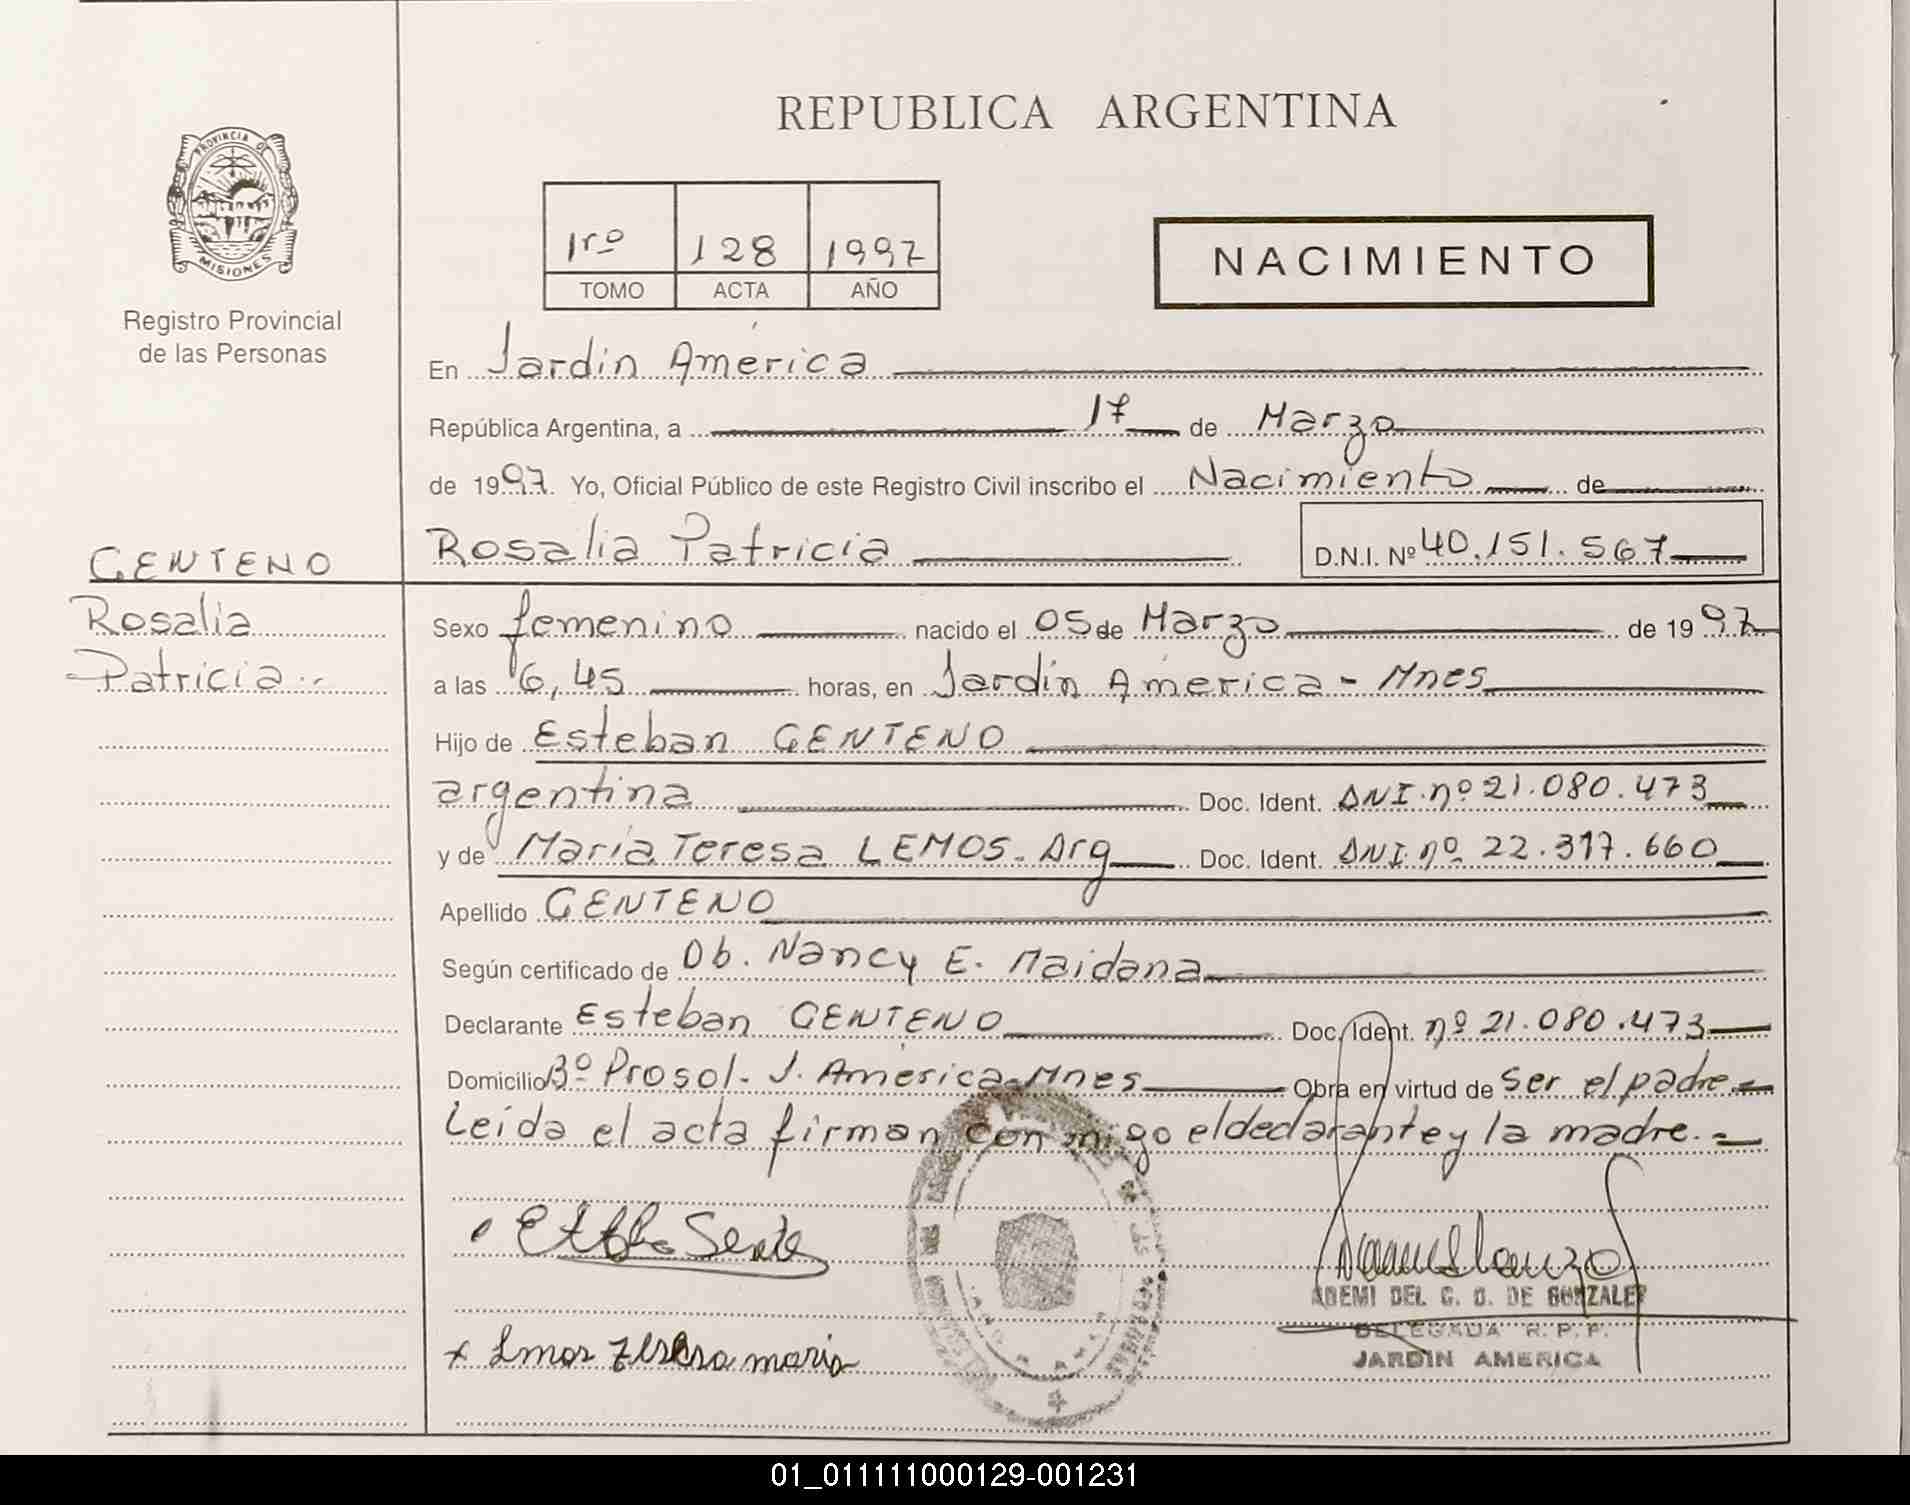 REPUBLICA ARGENTINA
PROVINCIA DE
MISIONES
Registro Provincial
de las Personas
1rº 128 1997
TOMO ACTA AÑO
NACIMIENTO
En Jardín América
República Argentina, a 17 de Marzo
de 1997. Yo, Oficial Público de este Registro Civil inscribo el Nacimiento de
Rosalia Patricia D.N.I. Nº 40.151.567
CENTENO
Rosalia
Patricia
Sexo femenino nacido el 05 de Marzo de 1997
a las 6,45 horas, en Jardín América - Mnes
Hijo de Esteban CENTENO
argentina Doc. Ident. DNI nº 21.080.473
y de María Teresa LEMOS. Arg Doc. Ident. DNI nº 22.317.660
Apellido CENTENO
Según certificado de Ob. Nancy E. Maidana
Declarante Esteban CENTENO Doc. Ident. nº 21.080.473
Domicilio Bº Prosol. J. América-Mnes Obra en virtud de ser el padre
Leída el acta firman conmigo el declarante y la madre.
x Lmos Teresa maria
ADEMI DEL C. D. DE GONZALEZ
DELEGADA R. P. P.
JARDIN AMERICA
01_011111000129-001231